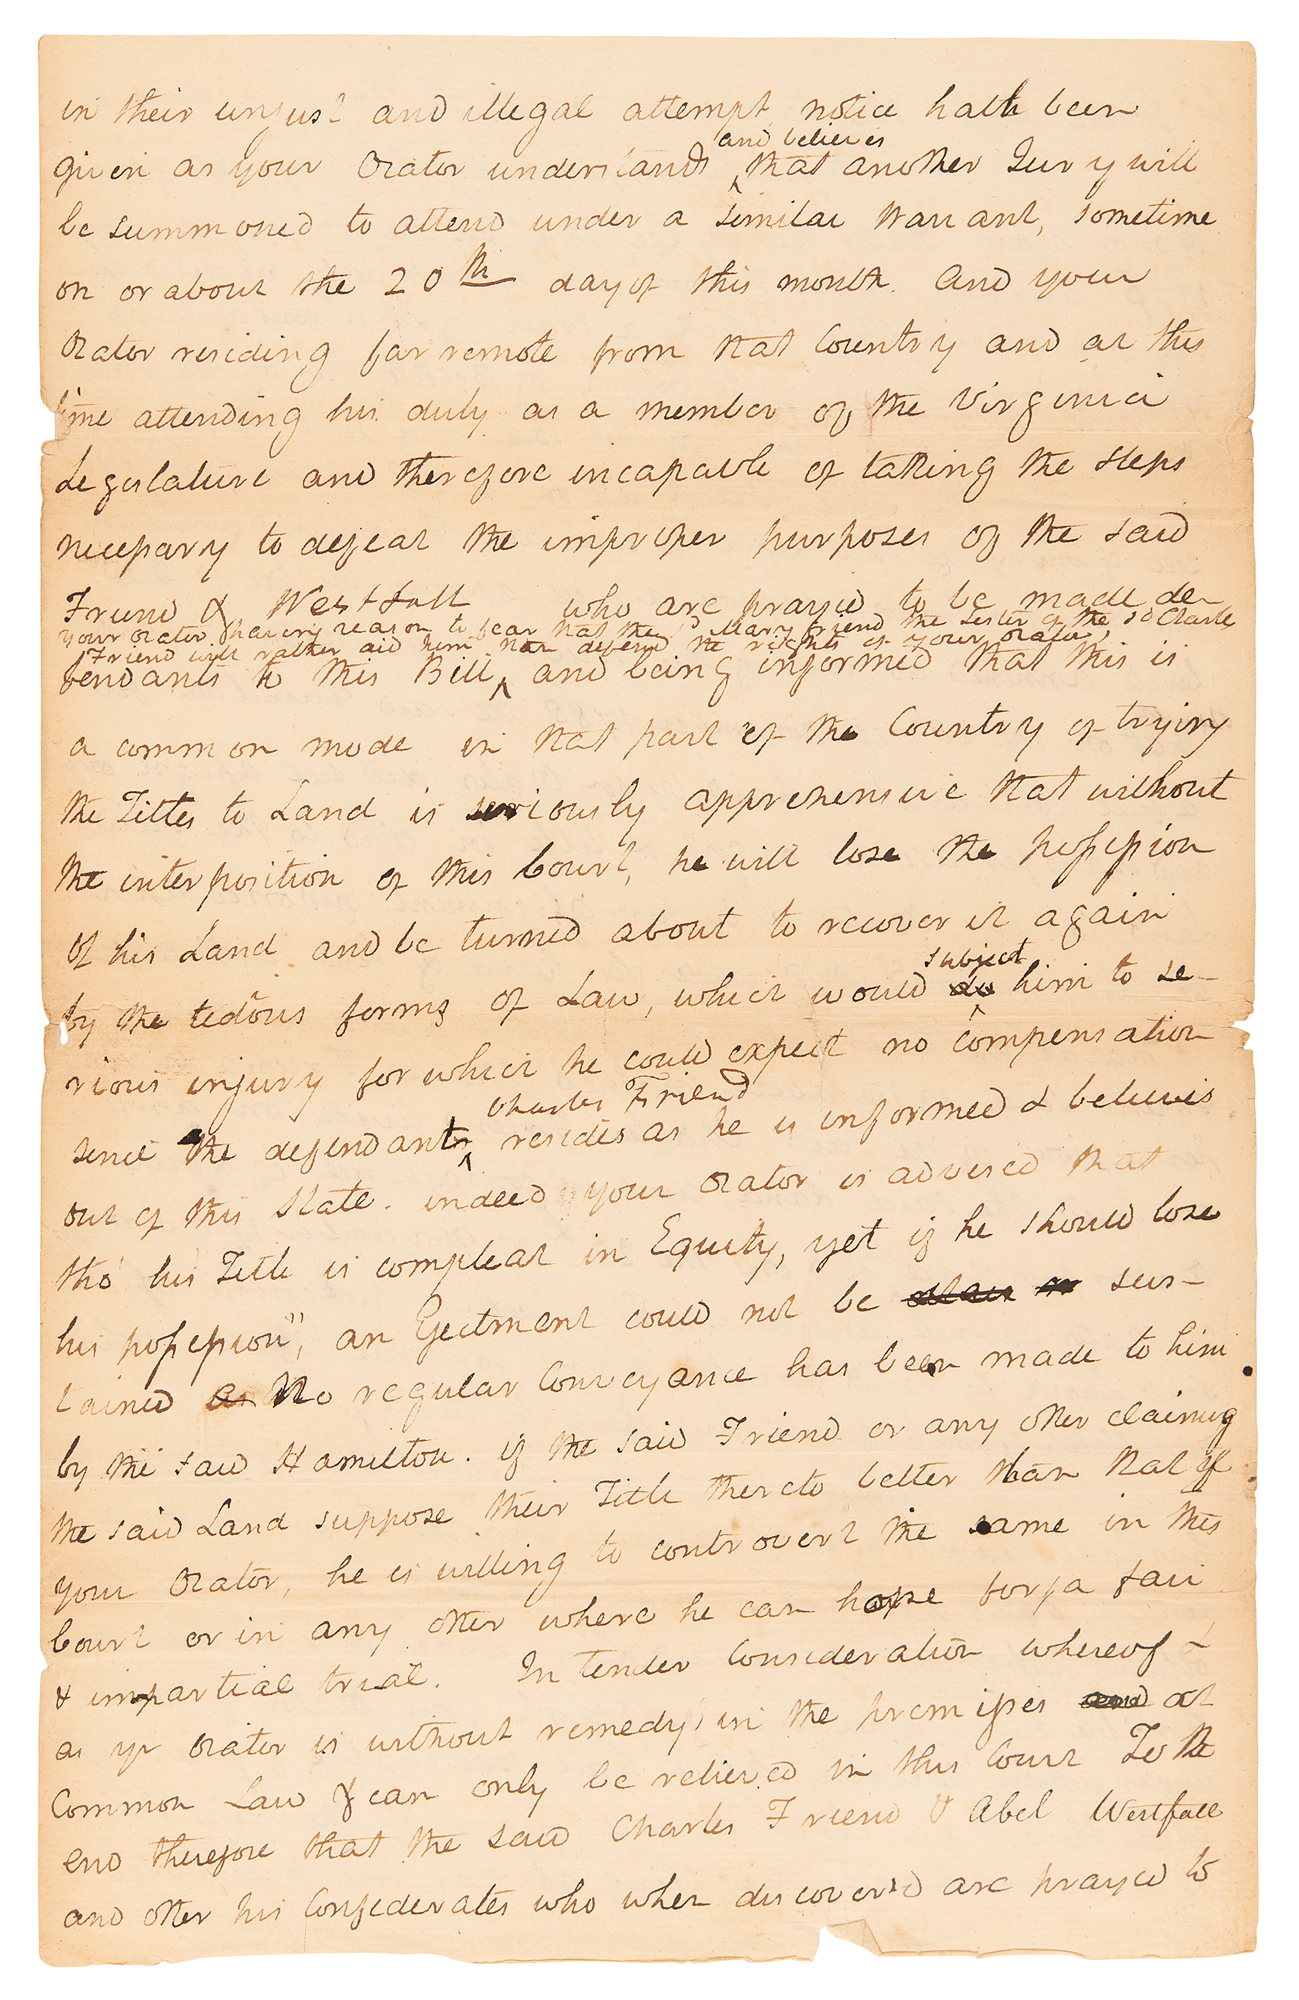 in their unjust and illegal attempt, notice hath been
and believes
given as your Orator understands that another Jury will
be summoned to attend under a similar Warrant, sometime
on or about the 20th day of this month. And your
Orator residing far remote from that Country and at this
time attending his duty as a member of the Virginia
Legislature and therefore incapable of taking the steps
necessary to defeat the improper purposes of the said
Friend & Westfall who are prayed to be made de-
your orator having reason to fear that the sd Mary Friend the sister of the sd Charle
Friend will rather aid him than defend the rights of your orator,
fendants to this Bill, and being informed that this is
a common mode in that part of the Country of trying
the Titles to Land is seriously apprehensive that without
the interposition of this Court, he will lose the possession
Of his Land and be turned about to recover it again
subject
by the tedious forms of Law, which would him to se-
rious injury for which he could expect no compensation
Charles Friend
since the defendant resides as he is informed & believes
out of this State. indeed your Orator is advised that
tho' his Title is compleat in Equity, yet if he should lose
his possession, an Ejectment could not be sus-
tained as No regular Conveyance has been made to him
by the said Hamilton. if the said Friend or any other claiming
the said Land suppose their Title thereto better than that of
your Orator, he is willing to controvert the same in this
Court or in any other where he can hope for a fair
& impartial trial. In tender Consideration whereof &
as yr Orator is without remedy in the premises and at
Common Law & can only be relieved in this Court To the
end therefore that the said Charles Friend & Abel Westfall
and other his Confederates who when discover'd are prayed to